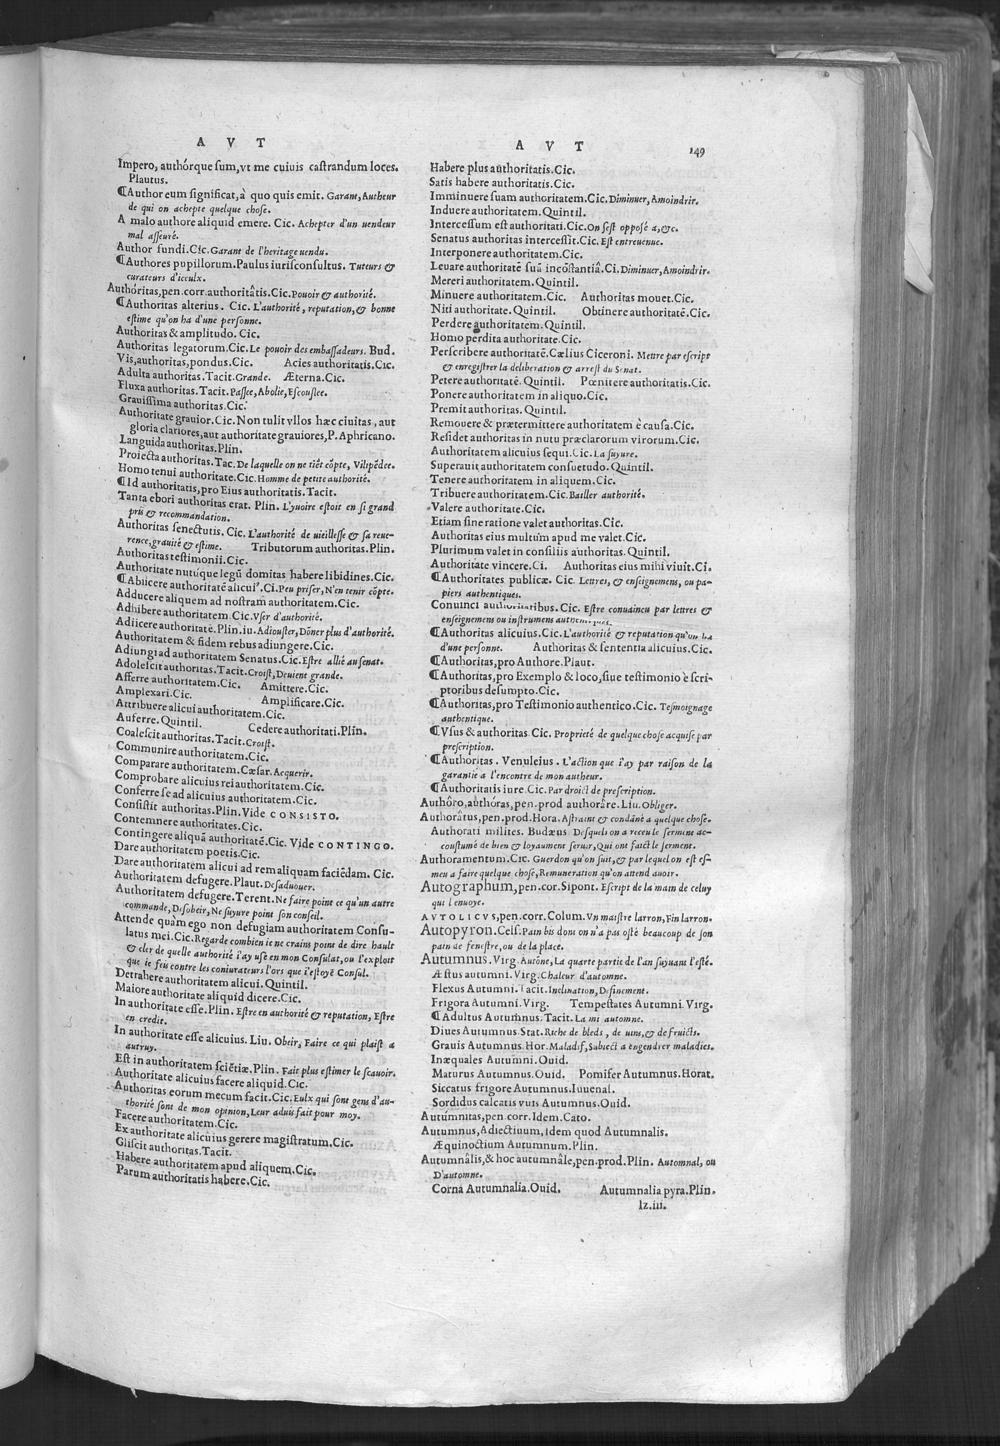 A V T
Impero, authórque sum, vt me cuiuis castrandum loces.
Plautus.
¶Author eum significat, à quo quis emit. Garant, Autheur
de qui on achepte quelque chose.
A malo authore aliquid emere. Cic. Achepter d'un uendeur
mal asseuré.
Author fundi. Cic. Garant de l'heritage uendu.
¶Authores pupillorum. Paulus iurisconsultus. Tuteurs &
curateurs d'iceulx.
Authóritas, pen. corr. authoritâtis. Cic. Pouoir & authorité.
¶Authoritas alterius. Cic. L'authorité, reputation, & bonne
estime qu'on ha d'une personne.
Authoritas & amplitudo. Cic.
Authoritas legatorum. Cic. Le pouoir des embassadeurs. Bud.
Vis, authoritas, pondus. Cic. Acies authoritatis. Cic.
Adulta authoritas. Tacit. Grande. Æterna. Cic.
Fluxa authoritas. Tacit. Passee, Abolie, Escoulee.
Grauissima authoritas. Cic.
Authoritate grauior. Cic. Non tulit vllos hæc ciuitas, aut
gloria clariores, aut authoritate grauiores, P. Aphricano.
Languida authoritas. Plin.
Proiecta authoritas. Tac. De laquelle on ne tiẽt cõpte, Vilipẽdee.
Homo tenui authoritate. Cic. Homme de petite authorité.
¶Id authoritatis, pro Eius authoritatis. Tacit.
Tanta ebori authoritas erat. Plin. L'yuoire estoit en si grand
pris & recommandation.
Authoritas senectutis. Cic. L'authorité de uieillesse & sa reue-
rence, grauité & estime. Tributorum authoritas. Plin.
Authoritas testimonii. Cic.
Authoritate nutúque legũ domitas habere libidines. Cic.
¶Abiicere authoritatẽ alicui'. Ci. Peu priser, N'en tenir cõpte.
Adducere aliquem ad nostram authoritatem. Cic.
Adhibere authoritatem. Cic. Vser d'authorité.
Adiicere authoritatẽ. Plin. iu. Adiouster, Dõner plus d'authorité.
Authoritatem & fidem rebus adiungere. Cic.
Adiungi ad authoritatem Senatus. Cic. Estre allié au senat.
Adolescit authoritas. Tacit. Croist, Deuient grande.
Afferre authoritatem. Cic. Amittere. Cic.
Amplexari. Cic. Amplificare. Cic.
Attribuere alicui authoritatem. Cic.
Auferre. Quintil. Cedere authoritati. Plin.
Coalescit authoritas. Tacit. Croist.
Communire authoritatem. Cic.
Comparare authoritatem. Cæsar. Acquerir.
Comprobare alicuius rei authoritatem. Cic.
Conferre se ad alicuius authoritatem. Cic.
Consistit authoritas. Plin. Vide CONSISTO.
Contemnere authoritates. Cic.
Contingere aliquã authoritatẽ. Cic. Vide CONTINGO.
Dare authoritatem poetis. Cic.
Dare authoritatem alicui ad rem aliquam faciẽdam. Cic.
Authoritatem defugere. Plaut. Desaduouer.
Authoritatem defugere. Terent. Ne faire point ce qu'un autre
commande, Desobeir, Ne suyure point son conseil.
Attende quàm ego non defugiam authoritatem Consu-
latus mei. Cic. Regarde combien ie ne crains point de dire hault
& cler de quelle authorité i'ay usé en mon Consulat, ou l'exploit
que ie feis contre les coniurateurs l'ors que i'estoyẽ Consul.
Detrahere authoritatem alicui. Quintil.
Maiore authoritate aliquid dicere. Cic.
In authoritate esse. Plin. Estre en authorité & reputation, Estre
en credit.
In authoritate esse alicuius. Liu. Obeir, Faire ce qui plaist a
autruy.
Est in authoritatem sciẽtiæ. Plin. Fait plus estimer le scauoir.
Authoritate alicuius facere aliquid. Cic.
Authoritas eorum mecum facit. Cic. Eulx qui sont gens d'au-
thorité sont de mon opinion, Leur aduis fait pour moy.
Facere authoritatem. Cic.
Ex authoritate alicuius gerere magistratum. Cic.
Gliscit authoritas. Tacit.
Habere authoritatem apud aliquem. Cic.
Parum authoritatis habere. Cic.
A V T
149
Habere plus authoritatis. Cic.
Satis habere authoritatis. Cic.
Imminuere suam authoritatem. Cic. Diminuer, Amoindrir.
Induere authoritatem. Quintil.
Intercessum est authoritati. Cic. On s'est opposé a, &c.
Senatus authoritas intercessit. Cic. Est entreuenue.
Interponere authoritatem. Cic.
Leuare authoritatẽ suã incõstantiâ. Ci. Diminuer, Amoindrir.
Mereri authoritatem. Quintil.
Minuere authoritatem. Cic. Authoritas mouet. Cic.
Niti authoritate. Quintil. Obtinere authoritatẽ. Cic.
Perdere authoritatem. Quintil.
Homo perdita authoritate. Cic.
Perscribere authoritatẽ. Cælius Ciceroni. Mettre par escript
& enregistrer la deliberation & arrest du Senat.
Petere authoritatẽ. Quintil. Pœnitere authoritatis. Cic.
Ponere authoritatem in aliquo. Cic.
Premit authoritas. Quintil.
Remouere & prætermittere authoritatem è causa. Cic.
Residet authoritas in nutu præclarorum virorum. Cic.
Authoritatem alicuius sequi. Cic. La suyure.
Superauit authoritatem consuetudo. Quintil.
Tenere authoritatem in aliquem. Cic.
Tribuere authoritatem. Cic. Bailler authorité.
Valere authoritate. Cic.
Etiam sine ratione valet authoritas. Cic.
Authoritas eius multùm apud me valet. Cic.
Plurimum valet in consiliis authoritas. Quintil.
Authoritate vincere. Ci. Authoritas eius mihi viuit. Ci.
¶Authoritates publicæ. Cic. Lettres, & enseignemens, ou pa-
piers authentiques.
Conuinci authoritatibus. Cic. Estre conuaincu par lettres &
enseignemens ou instrumens authentiques.
¶Authoritas alicuius. Cic. L'authorité & reputation qu'on ha
d'une personne. Authoritas & sententia alicuius. Cic.
¶Authoritas, pro Authore. Plaut.
¶Authoritas, pro Exemplo & loco, siue testimonio è scri-
ptoribus desumpto. Cic.
¶Authoritas, pro Testimonio authentico. Cic. Tesmoignage
authentique.
¶Vsus & authoritas. Cic. Proprieté de quelque chose acquise par
prescription.
¶Authoritas. Venuleius. L'action que i'ay par raison de la
garantie a l'encontre de mon autheur.
¶Authoritatis iure. Cic. Par droict de prescription.
Authôro, authóras, pen. prod authorâre. Liu. Obliger.
Authorâtus, pen. prod. Hora. Astraint & condãné a quelque chose.
Authorati milites. Budæus Desquels on a receu le serment ac-
coustumé de bien & loyaument seruir, Qui ont faict le serment.
Authoramentum. Cic. Guerdon qu'on suit, & par lequel on est es-
meu a faire quelque chose, Remuneration qu'on attend auoir.
Autographum, pen. cor. Sipont. Escript de la main de celuy
qui l'enuoye.
AVTOLICVS, pen. corr. Colum. Vn maistre larron, Fin larron.
Autopyron. Cels. Pain bis dont on n'a pas osté beaucoup de son
pain de fenestre, ou de la place.
Autumnus. Virg. Autõne, La quarte partie de l'an suyuant l'esté.
Æstus autumni. Virg. Chaleur d'automne.
Flexus Autumni. Tacit. Inclination, Definement.
Frigora Autumni. Virg. Tempestates Autumni. Virg.
¶Adultus Autumnus. Tacit. La mi automne.
Diues Autumnus. Stat. Riche de bleds, de uins, & de fruicts.
Grauis Autumnus. Hor. Maladif, Subiect a engendrer maladies.
Inæquales Autumni. Ouid.
Maturus Autumnus. Ouid. Pomifer Autumnus. Horat.
Siccatus frigore Autumnus. Iuuenal.
Sordidus calcatis vuis Autumnus. Ouid.
Autúmnitas, pen. corr. Idem. Cato.
Autumnus, Adiectiuum, Idem quod Autumnalis.
Æquinoctium Autumnum. Plin.
Autumnâlis, & hoc autumnâle, pen. prod. Plin. Automnal, ou
D'automne.
Corna Autumnalia. Ouid. Autumnalia pyra. Plin.
lz.iii.